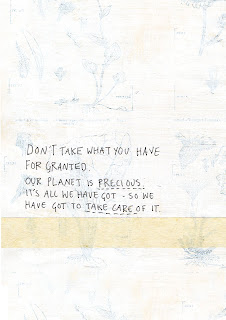 DON'T TAKE WHAT YOU HAVE
FOR GRANTED.
OUR PLANET IS PRECIOUS.
IT'S ALL WE HAVE GOT - SO WE
HAVE GOT TO TAKE CARE OF IT.